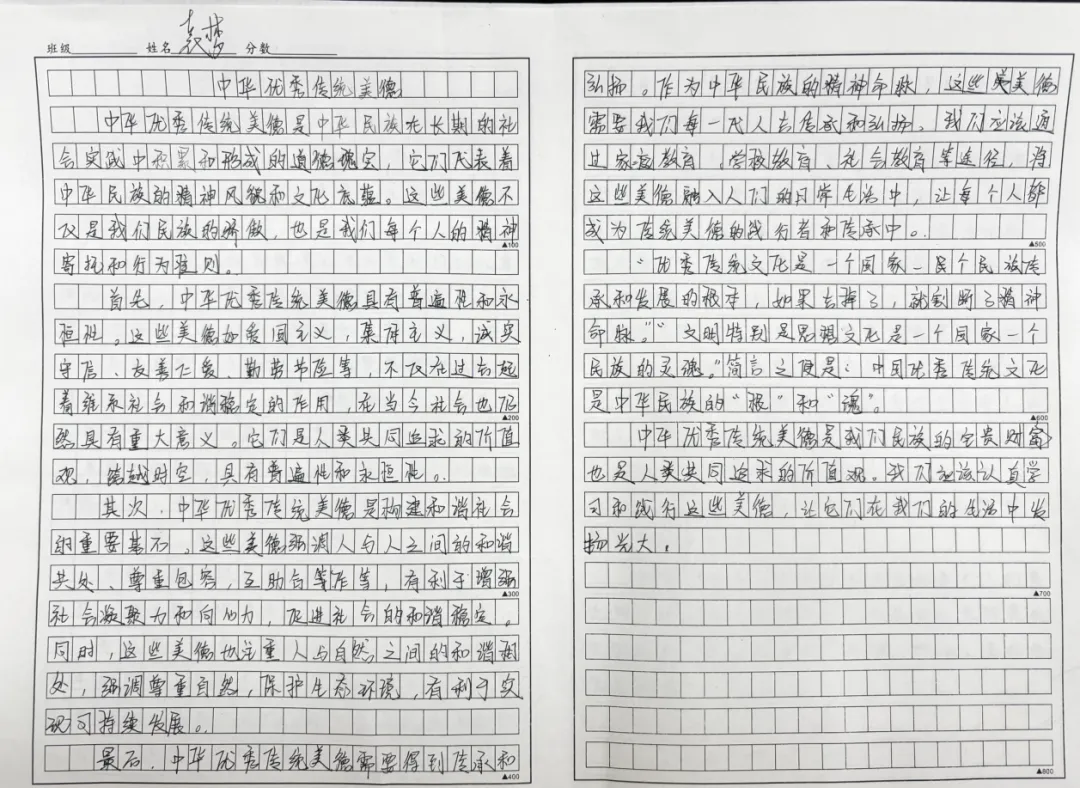 班级 姓名 袁梦 分数
中华优秀传统美德
中华优秀传统美德是中华民族在长期的社
会实践中积累和形成的道德瑰宝，它们代表着
中华民族的精神风貌和文化底蕴。这些美德不
仅是我们民族的骄傲，也是我们每个人的精神
▲100
寄托和行为准则。
首先，中华优秀传统美德具有普遍性和永
恒性。这些美德如爱国主义，集体主义，诚实
守信、友善仁爱、勤劳节俭等，不仅在过去起
着维系社会和谐稳定的作用，在当今社会也仍
▲200
然具有重大意义。它们是人类共同追求的价值
观，跨越时空，具有普遍性和永恒性。
其次，中华优秀传统美德是构建和谐社会
的重要基石。这些美德强调人与人之间的和谐
共处、尊重包容，互助合等作等，有利于增强
▲300
社会凝聚力和向心力，促进社会的和谐稳定。
同时，这些美德也注重人与自然之间的和谐相
处，强调尊重自然，保护生态环境，有利于实
现可持续发展。
最后，中华优秀传统美德需要得到传承和
▲400
弘扬。作为中华民族的精神命脉，这些美德
需要我们每一代人去传承和弘扬。我们应该通
过家庭教育、学校教育、社会教育等途径，将
这些美德融入人们的日常生活中，让每个人都
成为传统美德的践行者和传承中。
▲500
“优秀传统文化是一个国家一民个民族传
承和发展的根本，如果去掉了，就割断了精神
命脉。”“文明特别是思想文化是一个国家一个
民族的灵魂。”简言之便是：中国优秀传统文化
是中华民族的“根”和“魂”。
▲600
中华优秀传统美德是我们民族的宝贵财富
也是人类共同追求的价值观。我们应该认真学
习和践行这些美德，让它们在我们的生活中发
扬光大。
▲700
▲800